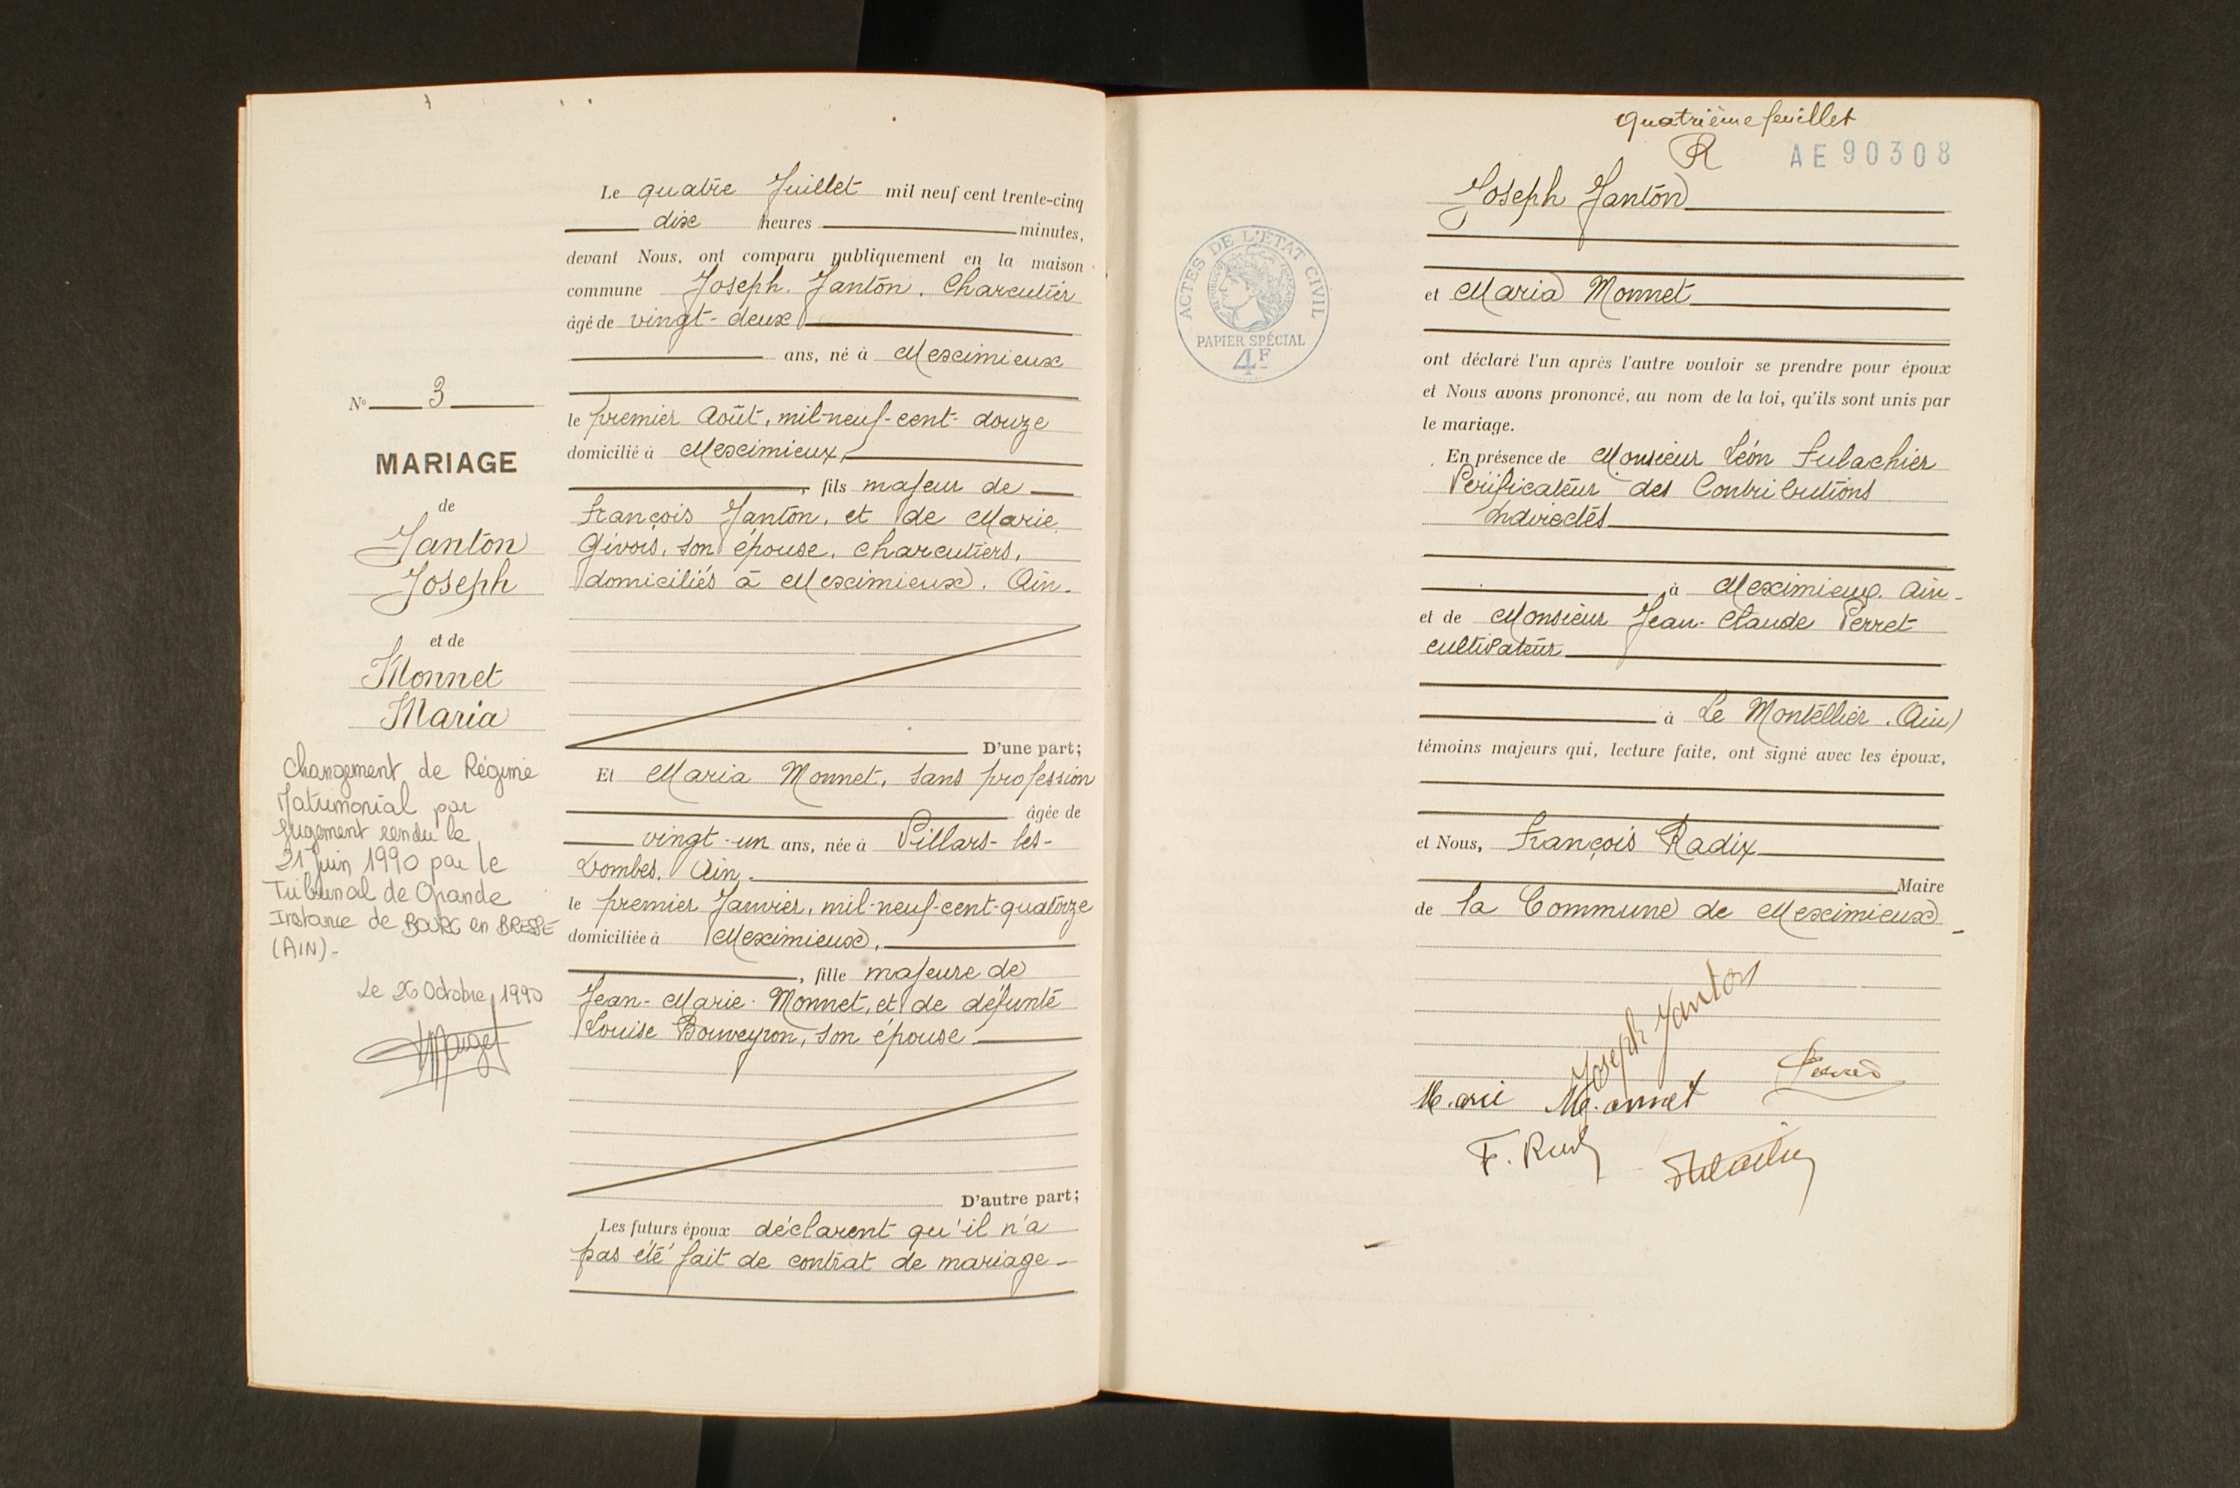 Le quatre Juillet mil neuf cent trente-cinq
dix heures minutes,
devant Nous, ont comparu publiquement en la maison
commune Joseph Janton. Charcutier
âgé de vingt-deux
ans, né à Meximieux
le premier Août, mil-neuf-cent-douze
domicilié à Meximieux,
, fils majeur de
François Janton, et de Marie
Givois, son épouse, charcutiers,
domiciliés à Meximieux. Ain.
D'une part;
Et Maria Monnet, sans profession
âgée de
vingt-un ans, née à Villars-les-
Dombes. Ain.
le premier Janvier, mil-neuf-cent-quatorze
domiciliée à Meximieux,
, fille majeure de
Jean-Marie Monnet, et de défunte
Louise Bouveyron, son épouse.
D'autre part;
Les futurs époux déclarent qu'il n'a
pas été fait de contrat de mariage-
N° 3
MARIAGE
de
Janton
Joseph
et de
Monnet
Maria
Changement de Régime
Matrimonial par
Jugement rendu le
21 Juin 1990 par le
Tribunal de Grande
Instance de BOURG en BRESSE
(AIN)-
Le 26 Octobre 1990
quatrième feuillet
R
AE 90308
ACTES DE L'ÉTAT CIVIL
RÉPUBLIQUE FRANÇAISE
PAPIER SPÉCIAL
4F
Joseph Janton
et Maria Monnet
ont déclaré l'un après l'autre vouloir se prendre pour époux
et Nous avons prononcé, au nom de la loi, qu'ils sont unis par
le mariage.
En présence de Monsieur Léon Fulachier
Vérificateur des Contributions
Indirectes
à Meximieux. Ain-
et de Monsieur Jean-Claude Perret
cultivateur
à Le Montellier. (Ain)
témoins majeurs qui, lecture faite, ont signé avec les époux,
et Nous, François Radix
Maire
de la Commune de Meximieux-
Joseph Janton
Marie Monnet